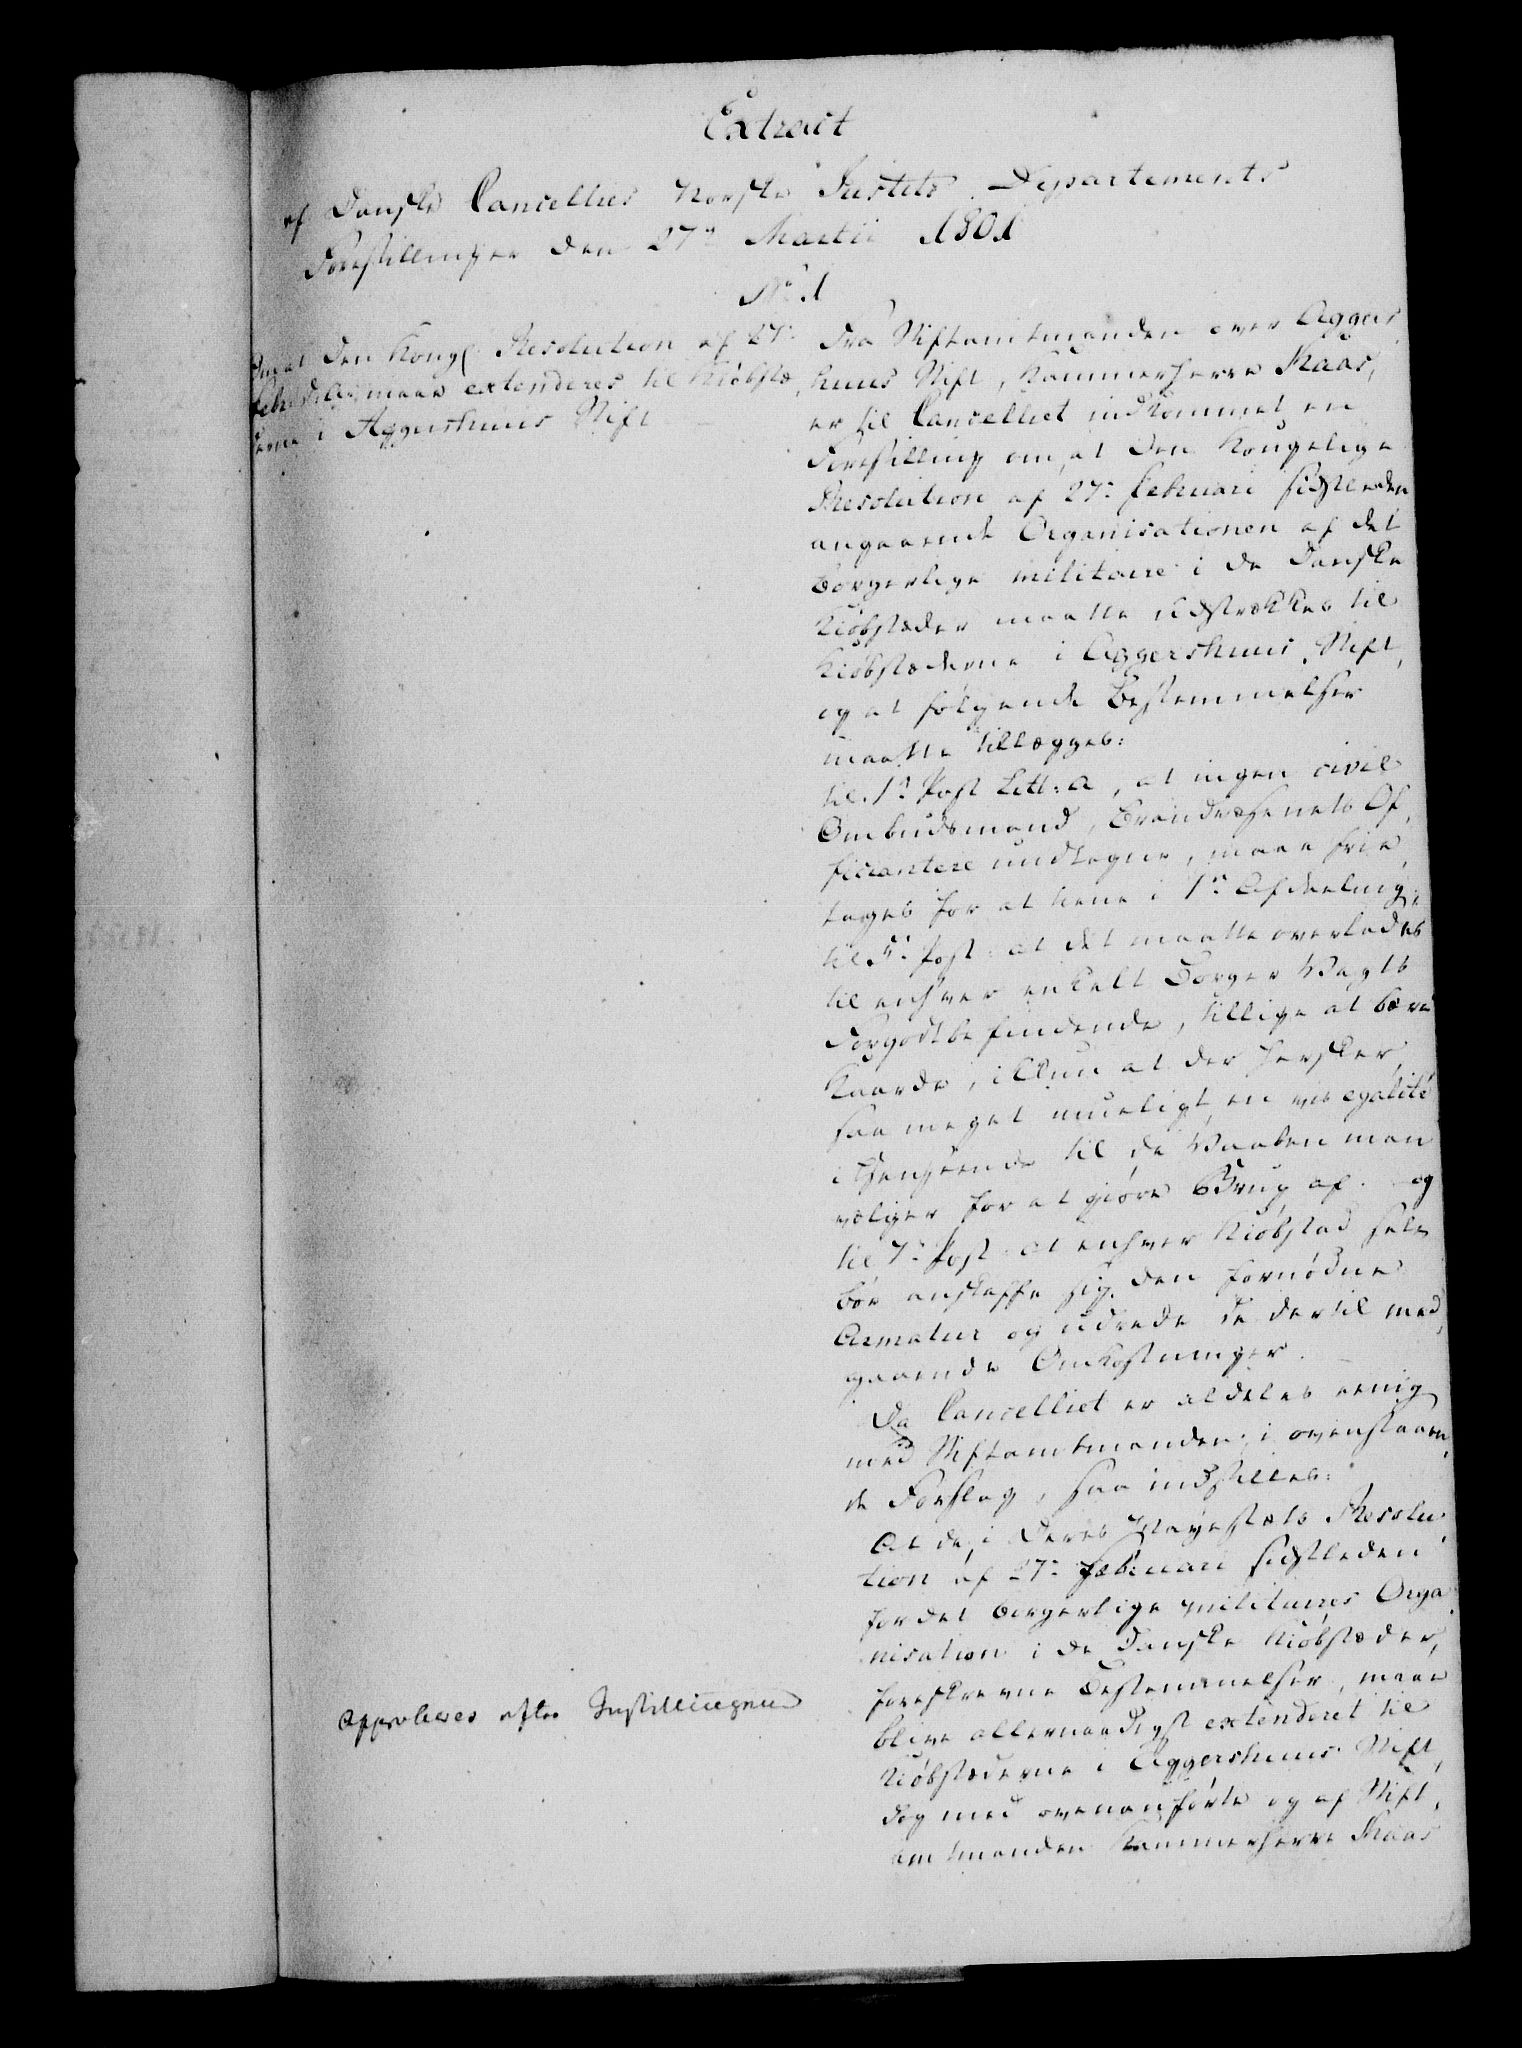 Extract
af Danske Cancellies Norske Justits Departements
Forestillinger den 27de Martii 1801
No. 1
Om at den Kongl. Resolution af 27.
Febr. maae extenderes til Kiøbstæ,
derne i Aggershuus Stift
Fra Stiftamtmanden over Aggers,
huus Stift, Kammerherre Kaas,
er til Cancelliet indkommet en
Forestilling om, at den Kongelige
Resolution af 27. Februari sidstleden
angaaende Organisationen af det
borgerlige militaire i de Danske
Kiøbstæder maatte udstrækkes til
Kiøbstæderne i Aggershuus Stift,
og at følgende Bestemmelser
maatte tillægges:
til 1ste Post Litt: a, at ingen civil
Ombudsmand, Brandvæsenets Of,
ficianter undtagne, maae frie,
tages for at tiene i 1ste Afdeeling;
til 5. Post: at det maatte overlades
til enhver enkelt Borger Vagts
Forgodtbefindende, tillige at bære
Kaarde, i kun at der hersker,
saa meget mueligt, en vis egalité
i Henseende til de Vaaben man
vælger for at giøre Brug af. og
til 7. Post at enhver Kiøbstad selv
bør anskaffe sig den fornødne
Armatur og udrede de dertil med,
gaaende Omkostninger.
Da Cancelliet er aldeles eenig
med Stiftamtmanden i ovenstaaen,
de Forslag, saa indstilles:
At de, i Deres Majestæts Resolu,
tion af 27. Februari sidstleden
for det borgerlige militaires Orga,
nisation i de Danske Kiøbstæder,
foreskrevne Bestemmelser, maae
blive allernaadigst extenderet til
Kiøbstæderne i Aggershuus Stift,
dog med ovenanførte og af Stift,
amtmanden Kammerherre Kaas
Approberes efter Indstillingen